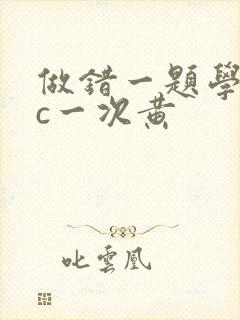 做錯一題學
c一次黃
叱雲凰